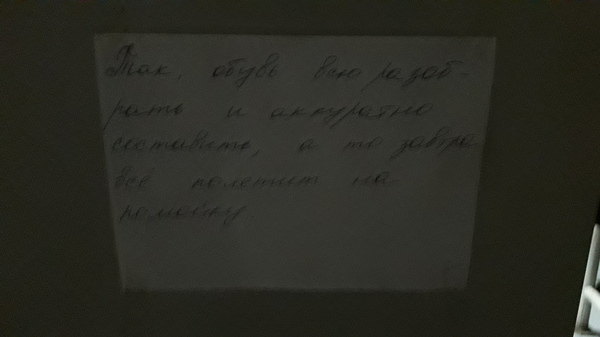 Так, обувь всю разоб-
рать и аккуратно
составить, а то завтра
всё полетит на
помойку